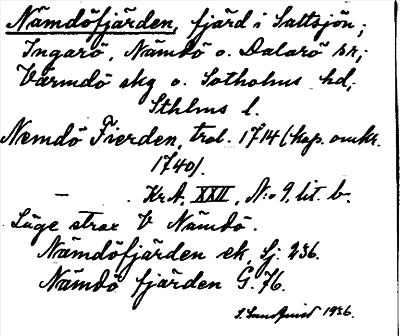 Nämdöfjärden, fjärd i Saltsjön;
Ingarö, Nämdö o. Dalarö sn;
Värmdö skg o. Sotholms hd;
Sthlms l.
Nemdö Fierden, trol. 1714 (kop. omkr.
1740).
— . KrA, XXII, N:o 9, lit. b.
Läge strax V Nämdö.
Nämdöfjärden ek, sj. 236.
Nämdö fjärden G. 76.
1936.